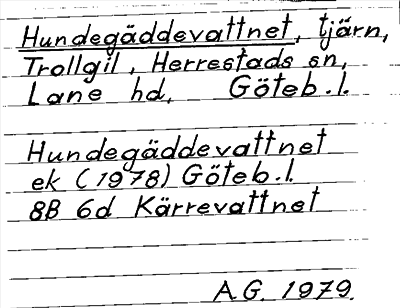 Hundegäddevattnet, tjärn,
Trollgil, Herrestads sn,
Lane hd, Göteb.l.
Hundegäddevattnet
ek (1978) Göteb.l.
8B 6d Kärrevattnet
A.G. 1979.